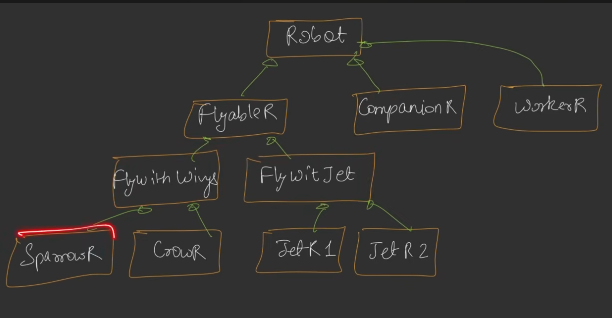 Robot
FlyableR
CompanionR
WorkerR
FlywithWings
FlyWitJet
SparrowR
CrowR
JetR1
JetR2